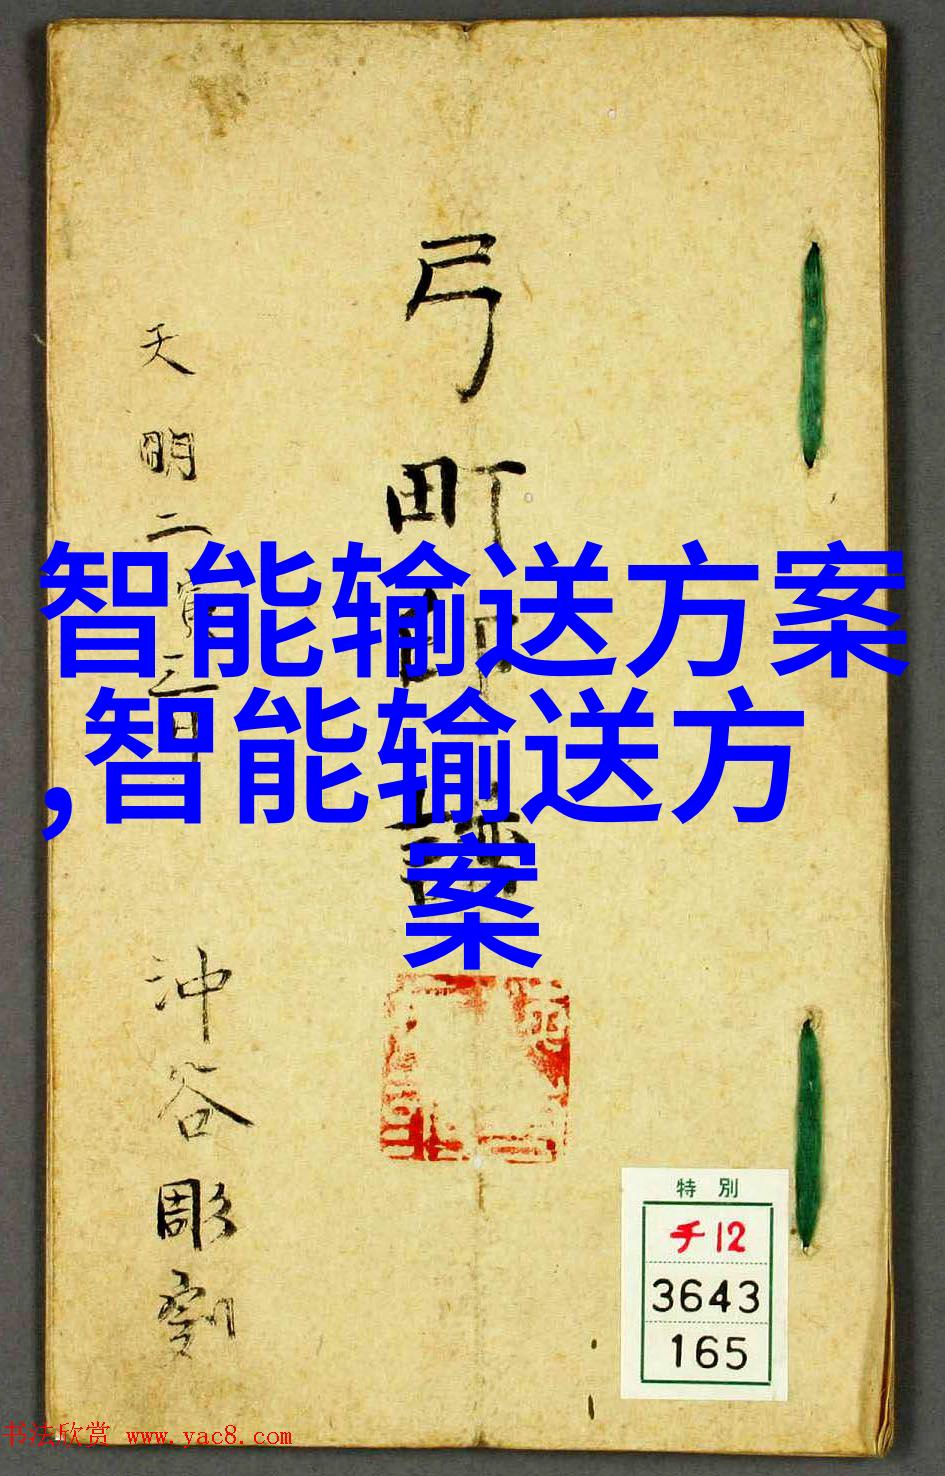 弓町
天明二寅三月
沖谷彫刻
智能输送方案
,智能输送方
案
特別
チ12
3643
165
书法欣赏 www.yac8.com